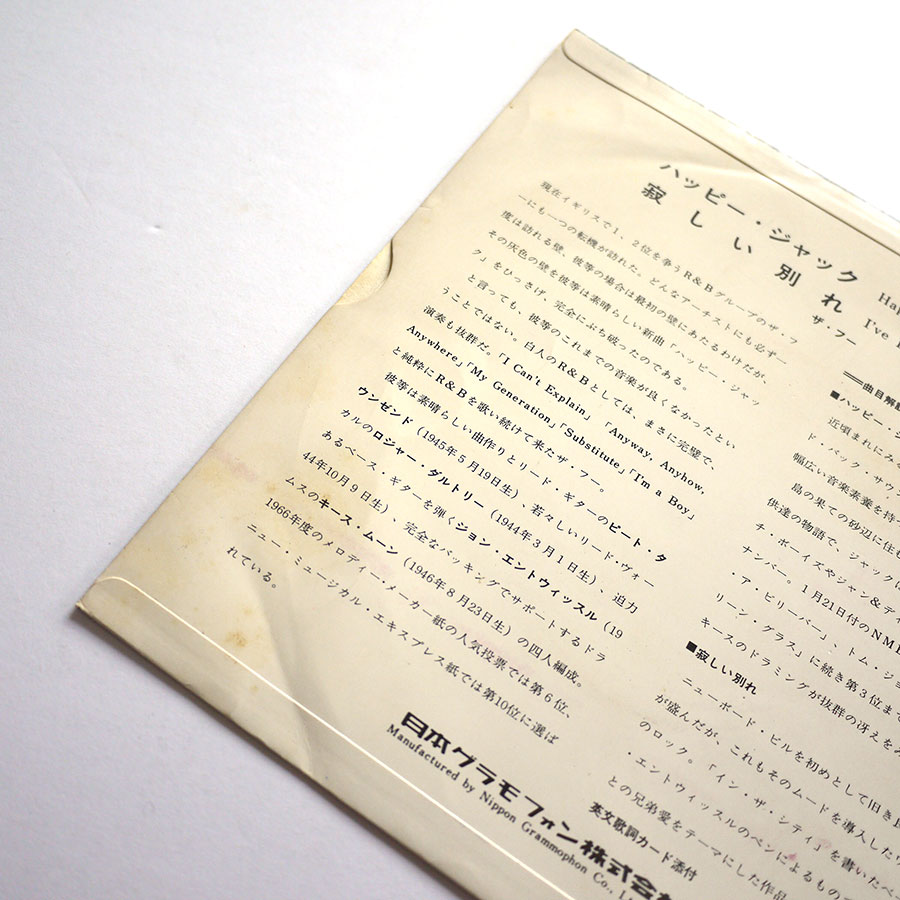 ハッピー・ジャック
寂しい別れ
ザ・フー
現在イギリスで1、2位を争うR&Bグループのザ・フ
ーにも一つの転機が訪れた。どんなアーチストにも必ず一
度は訪れる壁、彼等の場合は最初の壁にあたるわけだが、
その灰色の壁を彼等は素晴らしい新曲「ハッピー・ジャッ
ク」をひっさげ、完全にぶち破ったのである。
と言っても、彼等のこれまでの音楽が良くなかったとい
うことではない。白人のR&Bとしては、まさに完璧で、
演奏も抜群だ。「I Can't Explain」「Anyway, Anyhow,
Anywhere」「My Generation」「Substitute」「I'm a Boy」
と純粋にR&Bを歌い続けて来たザ・フー。
彼等は素晴らしい曲作りとリード・ギターのピート・タ
ウンゼンド（1945年5月19日生）、若々しいリード・ヴォー
カルのロジャー・ダルトリー（1944年3月1日生）、迫力
あるベース・ギターを弾くジョン・エントウィッスル（19
44年10月9日生）、完全なバッキングでサポートするドラ
ムスのキース・ムーン（1946年8月23日生）の四人編成。
1966年度のメロディー・メーカー紙の人気投票では第6位、
ニュー・ミュージカル・エキスプレス紙では第10位に選ば
れている。
日本グラモフォン株式会
Manufactured by Nippon Grammophon Co.,
I've
曲目解
■ハッピー・
近頃まれにみる
ド・バック・サウン
幅広い音楽素養を持つ
島の果ての砂辺に住む
供達の物語で、ジャックは
チ・ボーイズやジャン&ディ
ナンバー。1月21日付のNME
・ア・ビリーバー」、トム・ジョ
リーン・グラス」に続き第3位まで
キースのドラミングが抜群の冴えをみ
■寂しい別れ
ニューボード・ビルを初めとして旧き良
が盛んだが、これもそのムードを導入したウ
のロック。「イン・ザ・シティ」を書いたベ
・エントウィッスルのペンによるもので
との兄弟愛をテーマにした作品
英文歌詞カード添付